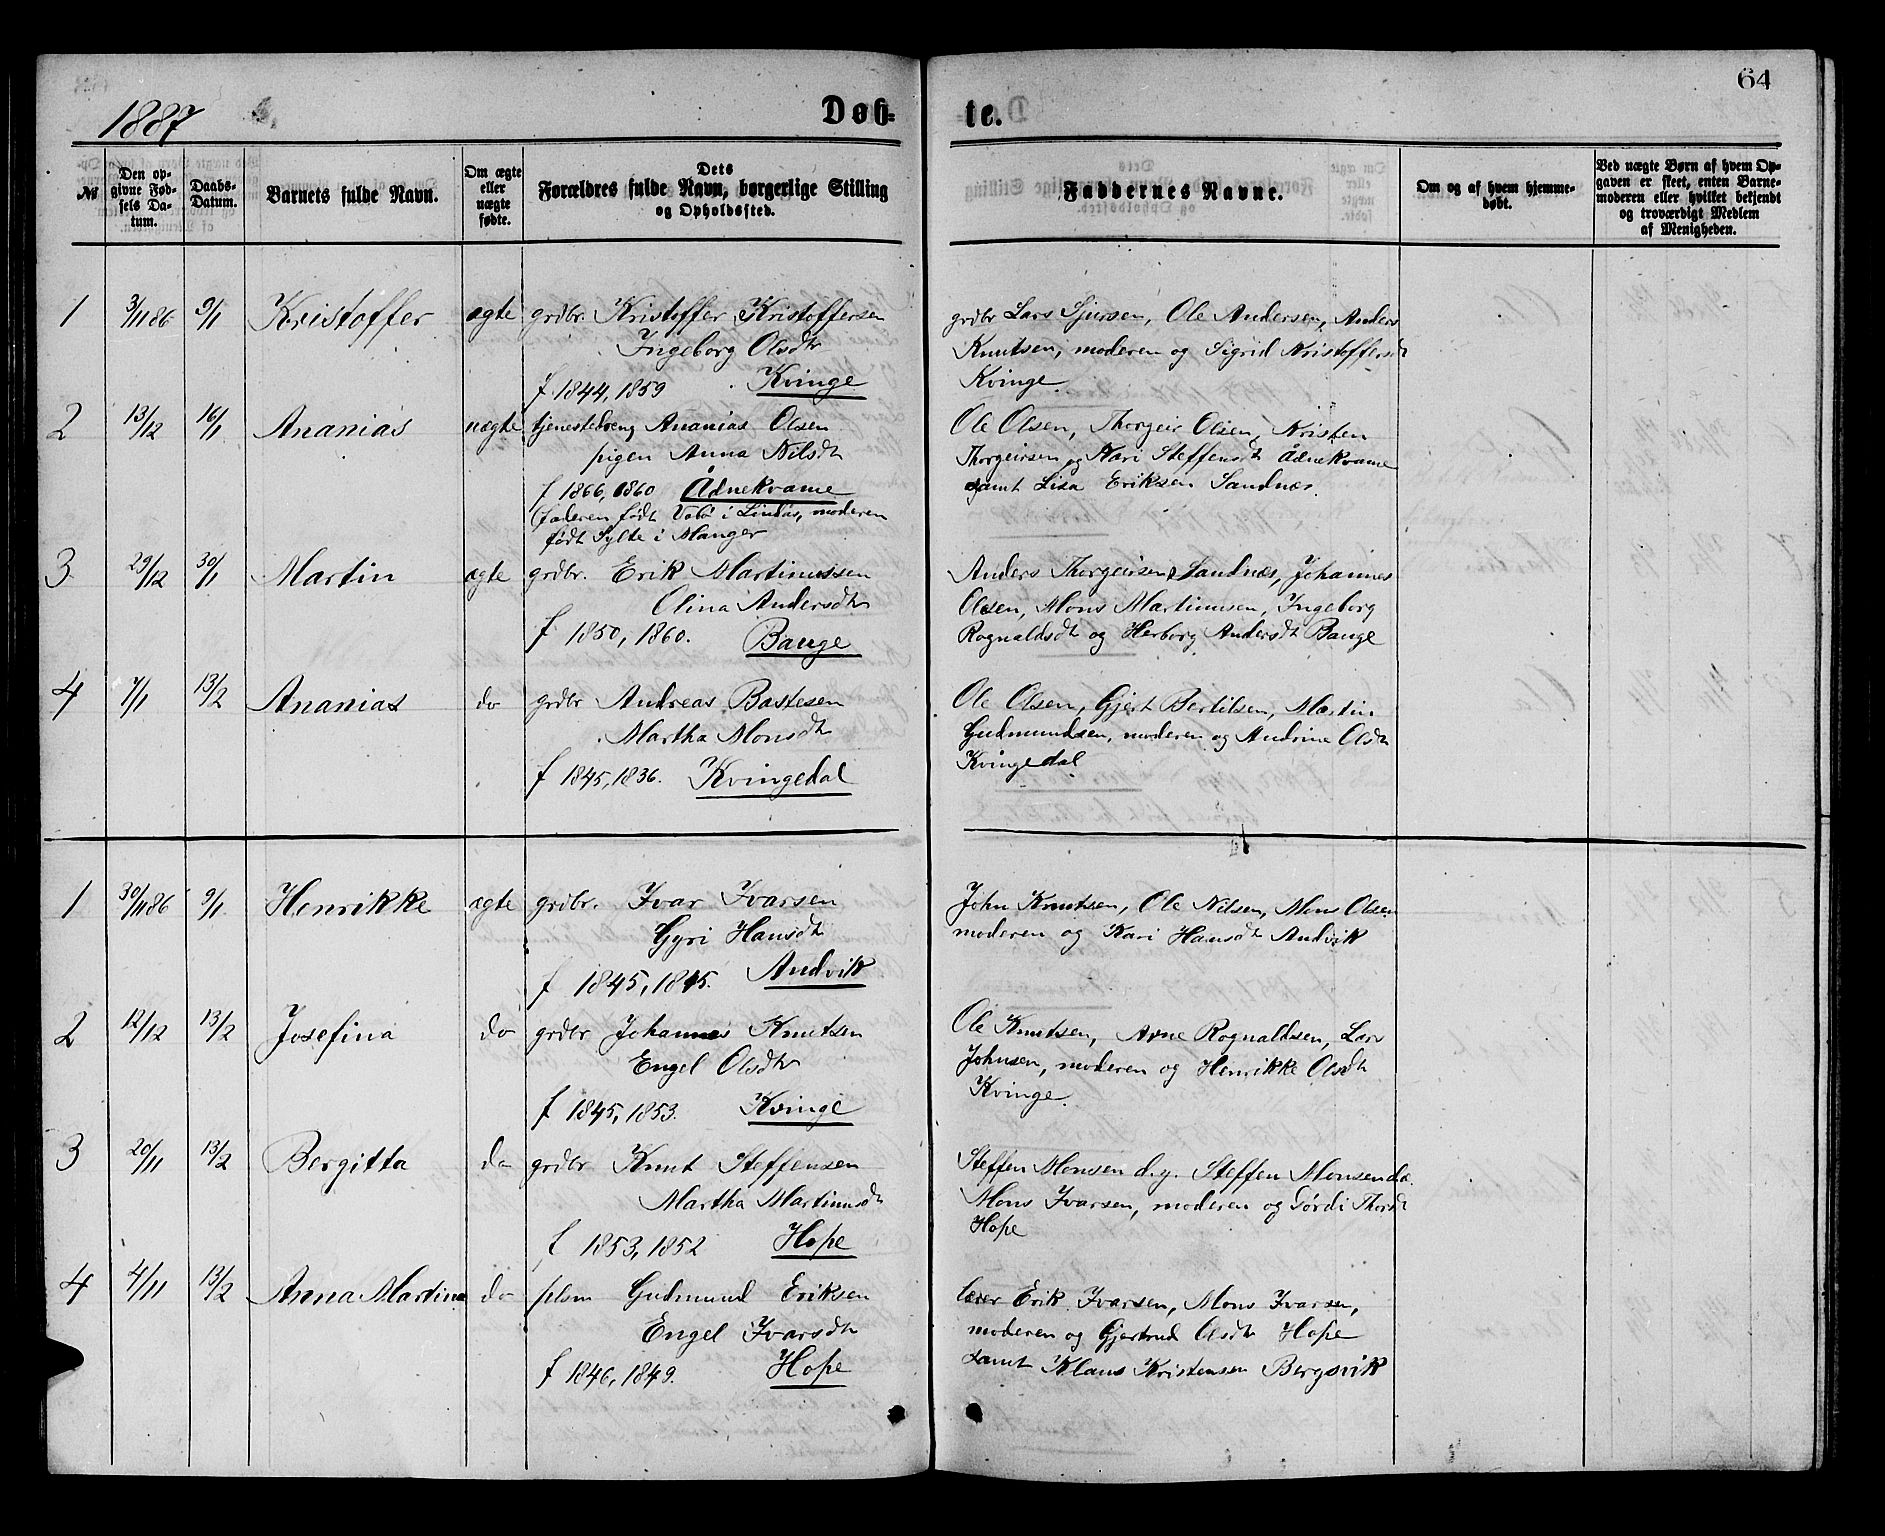 64
1887
Døb-
te.
№
Den op-
givne Fød-
sels Da-
tum.
Daabs-
Datum.
Barnets fulde Navn.
Om ægte
eller
uægte
fødte.
Dets
Forældres fulde Navn, borgerlige Stilling
og Opholdssted.
Faddernes Navne.
Om og af hvem hjemme-
døbt.
Ved uægte Børn af hvem Op-
gaven er skeet, enten Barne-
moderen eller hvilket bekjendt
og troværdigt Medlem
af Menigheden.
1 3/11 86 9/1 Kristoffer ægte grdbr. Kristoffer Kristoffersen
Ingeborg Olsdtr
f 1844, 1859 Kvinge
grdbr Lars Sjursen, Ole Andersen, Anders
Knutsen, moderen og Sigrid Kristoffersdt
Kvinge
2 13/12 16/1 Ananias uægte tjenestedreng Ananias Olsen
pigen Anna Nilsdtr
f 1866, 1860 Ådnekvame
faderen født i Lindås, moderen
født Sylte i Manger
Ole Olsen, Thorgeir Olsen, Kristen
Thorgeirsen og Kari Steffensdt Ådnekvame
samt Lisa Eriksen Sandnæs.
3 29/12 30/1 Martin ægte grdbr. Erik Martinussen
Olina Andersdtr
f 1850, 1860. Bauge
Anders Thorgeirsen Sandnæs, Johannes
Olsen, Mons Martinusen, Ingeborg
Rognaldsdt og Herborg Andersdt Bauge
4 7/1 13/2 Ananias do grdbr Andreas Bastesen
Martha Monsdtr
f 1845, 1836. Kvingedal
Ole Olsen, Gjert Bertilsen, Martin
Gudmundsen, moderen og Andrine Olsdtr
Kvingedal
1 30/11 86 9/1 Henrikke ægte grdbr. Ivar Ivarsen
Gyri Hansdtr
f 1845, 1845. Andvik
John Knutsen, Ole Nilsen, Mons Olsen
moderen og Kari Hansdt Andvik
2 12/12 13/2 Josefina do grdbr Johannes Knutsen
Engel Olsdtr
f 1845, 1853. Kvinge
Ole Knutsen, Arne Rognaldsen, Lars
Johnsen, moderen og Henrikke Olsdtr
Kvinge.
3 20/11 13/2 Bergitta do grdbr Knut Steffensen
Martha Martinusdt
f 1853, 1852 Hope
Steffen Monsen d.y. Steffen Monsen d.æ.
Mons Ivarsen, moderen og Gørdi Thorsdt
Hope
4 4/11 13/2 Anna Martina do plsm Gudmund Eriksen
Engel Ivarsdtr
f 1846, 1849. Hope
lærer Erik Ivarsen, Mons Ivarsen,
moderen og Gjertrud Olsdtr Hope
samt Klaus Kristensen Bergsvik